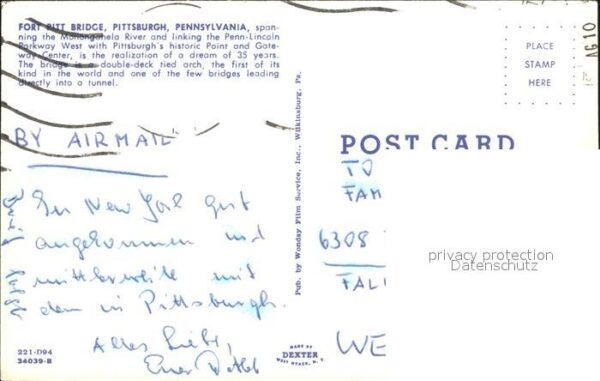 FORT PITT BRIDGE, PITTSBURGH, PENNSYLVANIA, span-
ning the Monongahela River and linking the Penn-Lincoln
Parkway West with Pittsburgh's historic Point and Gate-
way Center, is the realization of a dream of 35 years.
The bridge is a double-deck tied arch, the first of its
kind in the world and one of the few bridges leading
directly into a tunnel.
BY AIRMAIL
In New York gut
angekommen und
mittlerweile mit
dem in Pittsburgh.
Alles Liebe,
Euer
221-D94
34039-B
Pub. by Wonday Film Service, Inc., Wilkinsburg, Pa.
MADE BY
DEXTER
WEST NYACK, N. Y.
PLACE
STAMP
HERE
POST CARD
TO
FAM
6308
FAL
WE
privacy protection
Datenschutz